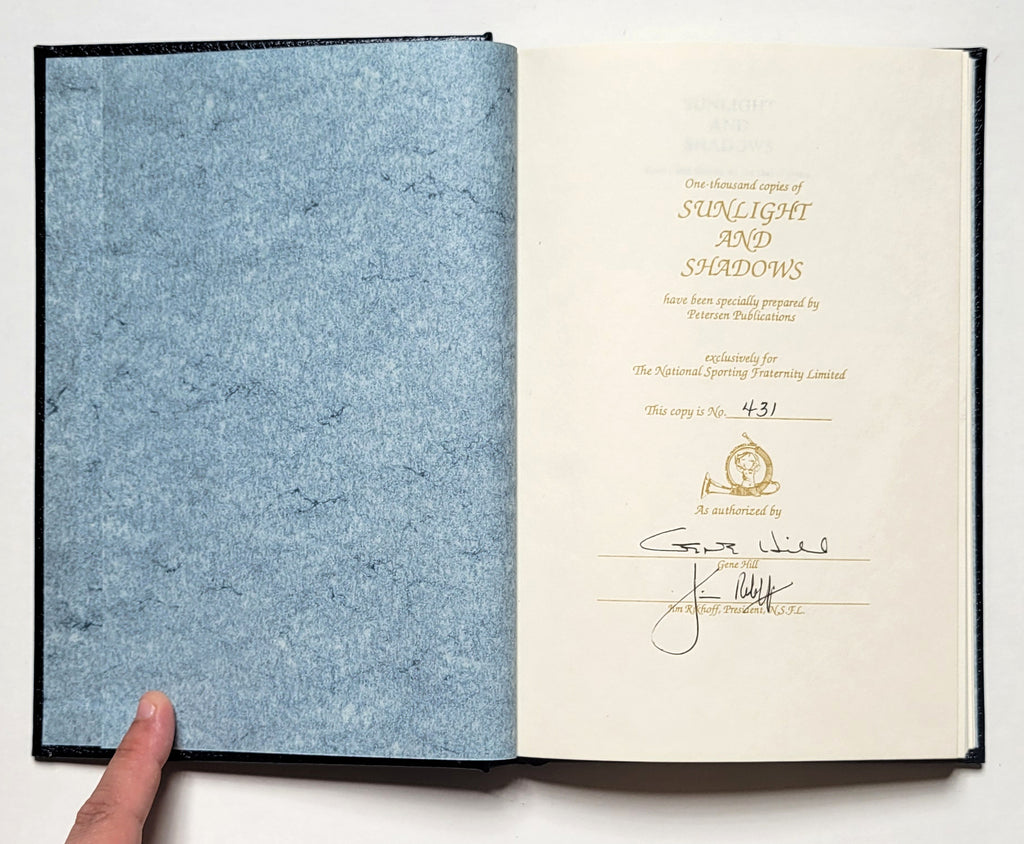 SUNLIGHT
AND
SHADOWS
One-thousand copies of
SUNLIGHT
AND
SHADOWS
have been specially prepared by
Petersen Publications
exclusively for
The National Sporting Fraternity Limited
This copy is No. 431
As authorized by
Gene Hill
Gene Hill
Jim Rikhoff
Jim Rikhoff, President, N.S.F.L.